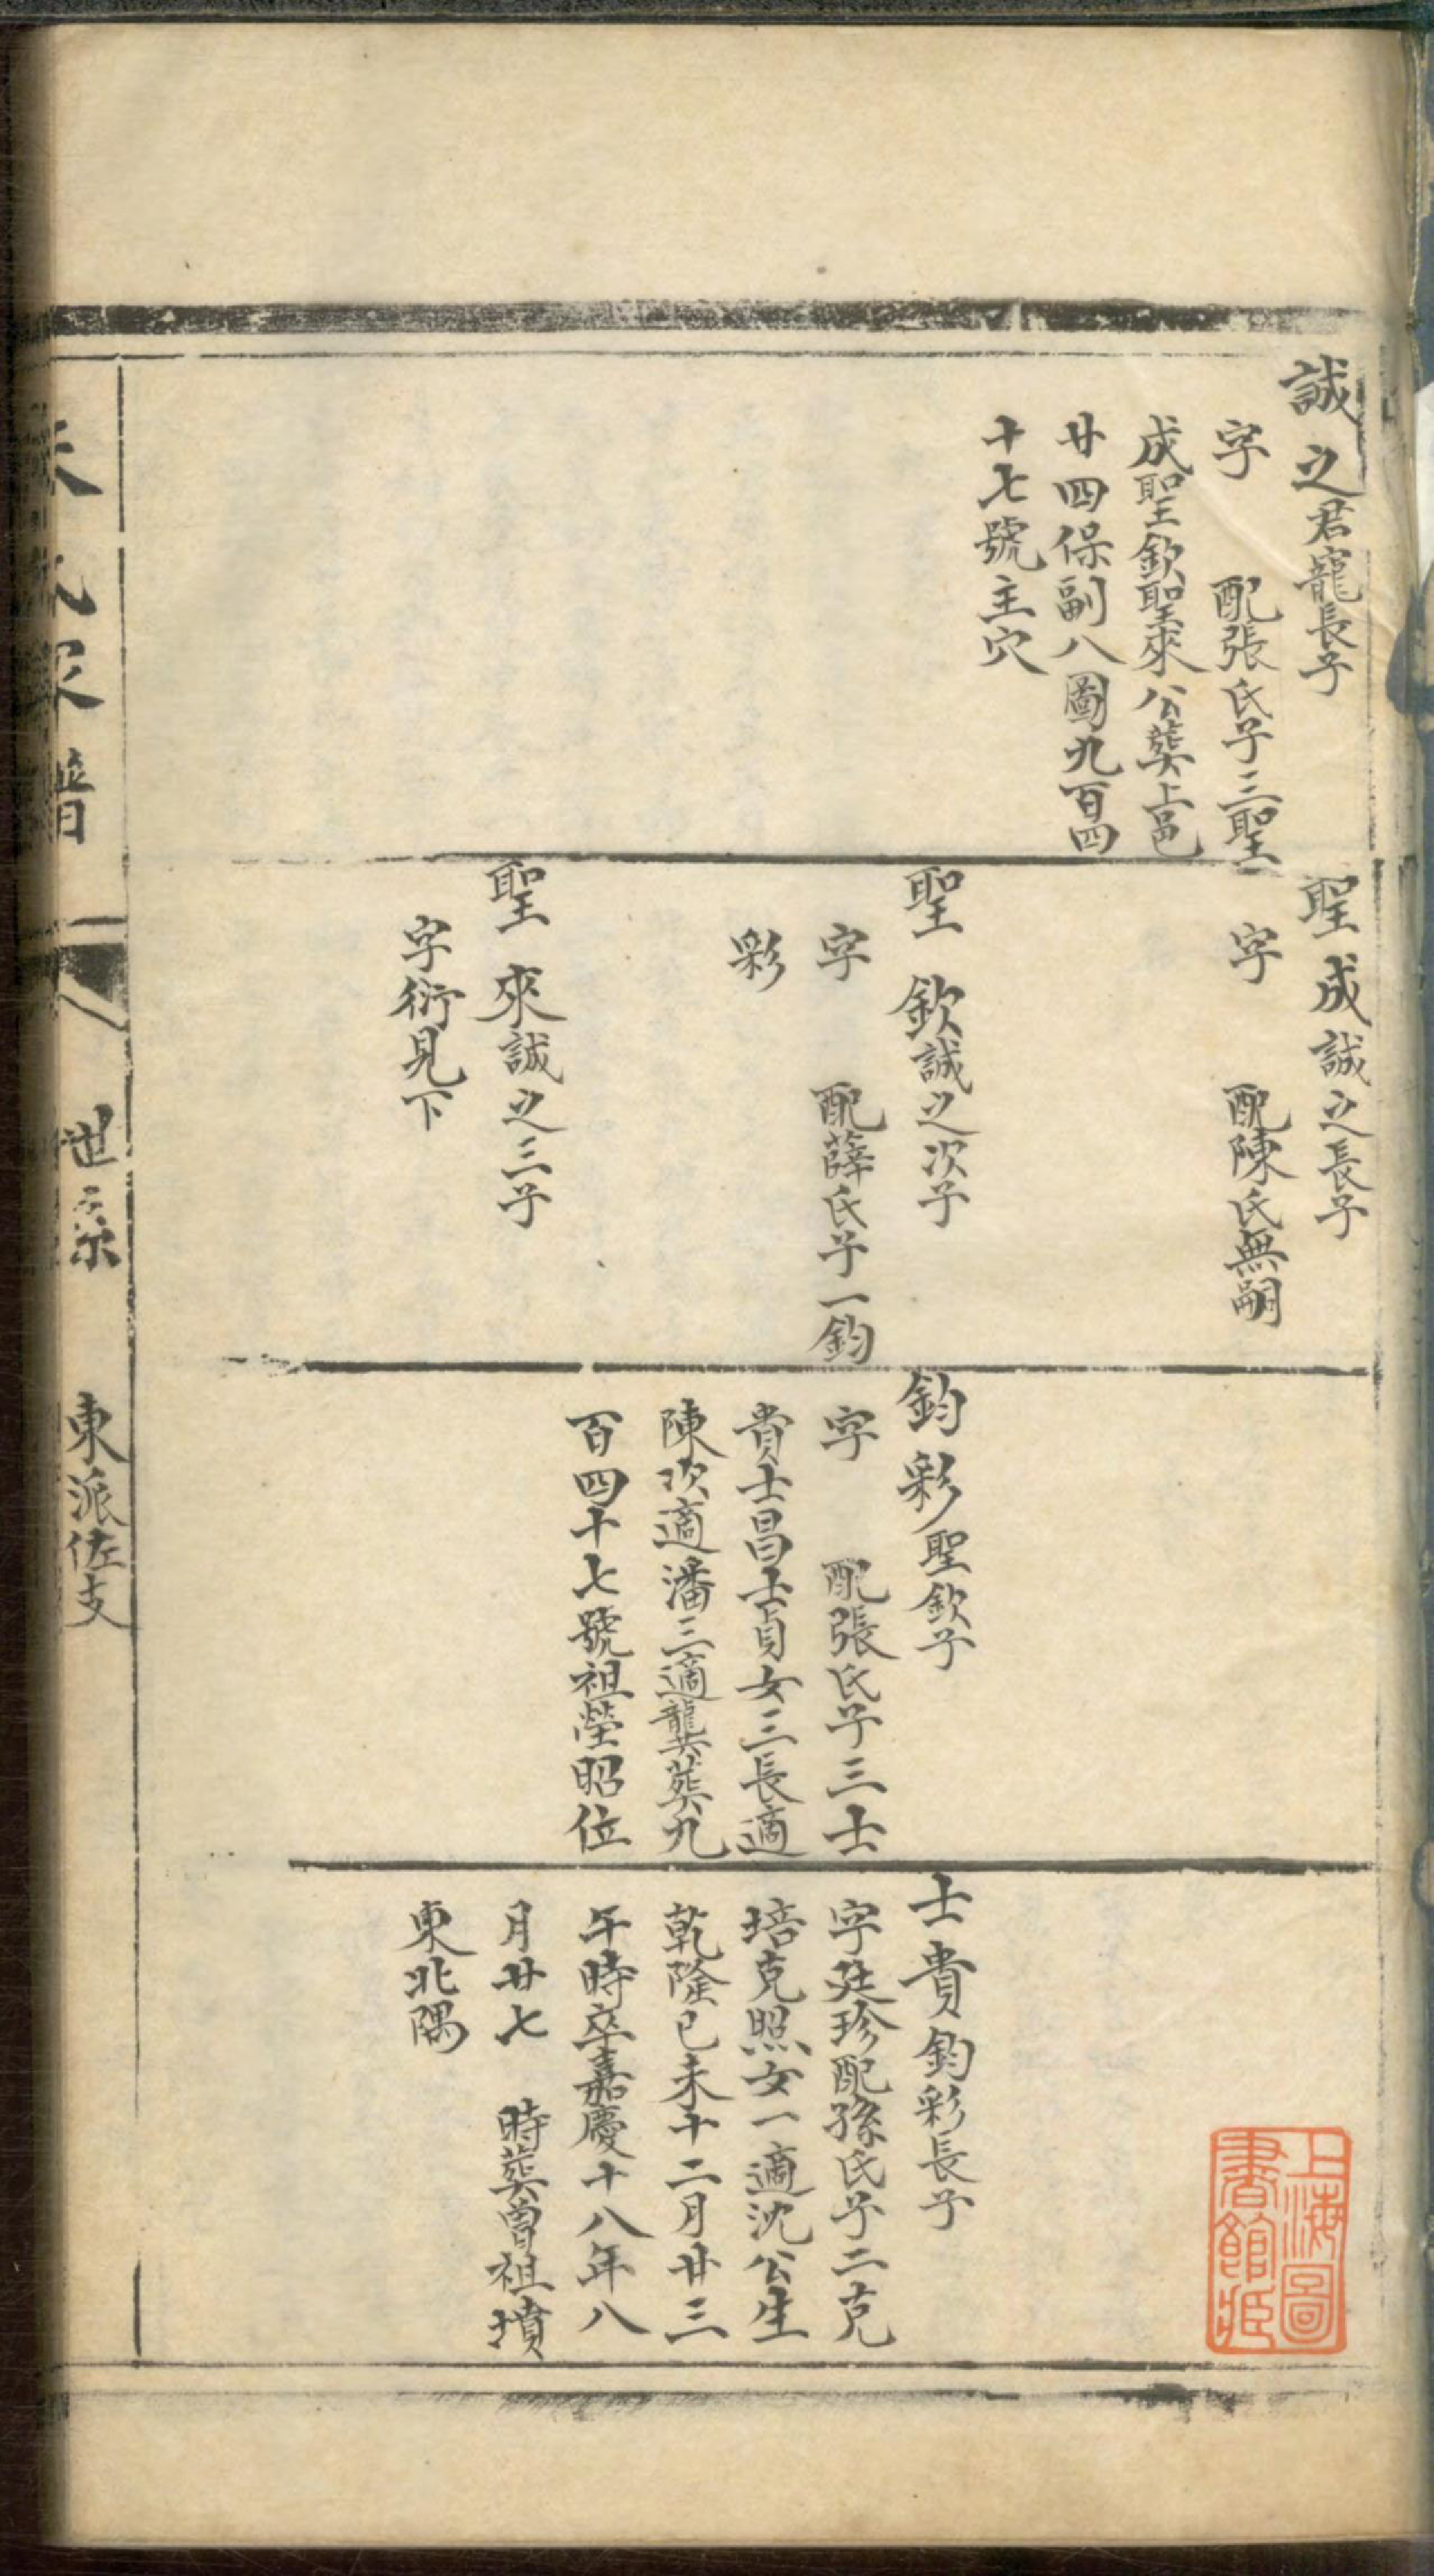 誠之君寵長子
字　配張氏子三聖
成聖欽聖來公葬上邑
廿四保副八圖九百四
十七號主穴
聖成誠之長子
字　配陳氏無嗣
聖欽誠之次子
字　配薛氏子一鈞
彩
聖來誠之三子
字衍見下
鈞彩聖欽子
字　配張氏子三士
貴士昌士貞女三長適
陳次適潘三適龔葬九
百四十七號祖塋昭位
士貴鈞彩長子
字廷珍配孫氏子二克
培克照女一適沈公生
乾隆己未十二月廿三
午時卒嘉慶十八年八
月廿七　時葬曾祖墳
東北隅
朱氏家譜　世系　東派佐支
上海圖
書館藏